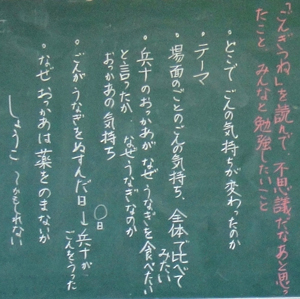 「ごんぎつね」を読んで不思議だなあと思っ
たこと みんなと勉強したいこと
・どこでごんの気持ちが変わったのか
・テーマ
・場面のごとのごんの気持ち、全体で比べて
みたい
・兵十のおっかあがなぜうなぎを食べたい
と言ったか、なぜうなぎなのか
おっかあの気持ち
〇日
・ごんがうなぎをぬすんだ日〜兵十が
ごんをうった
・なぜおっかあは薬をのまないか
しょうこ 〜かもしれない